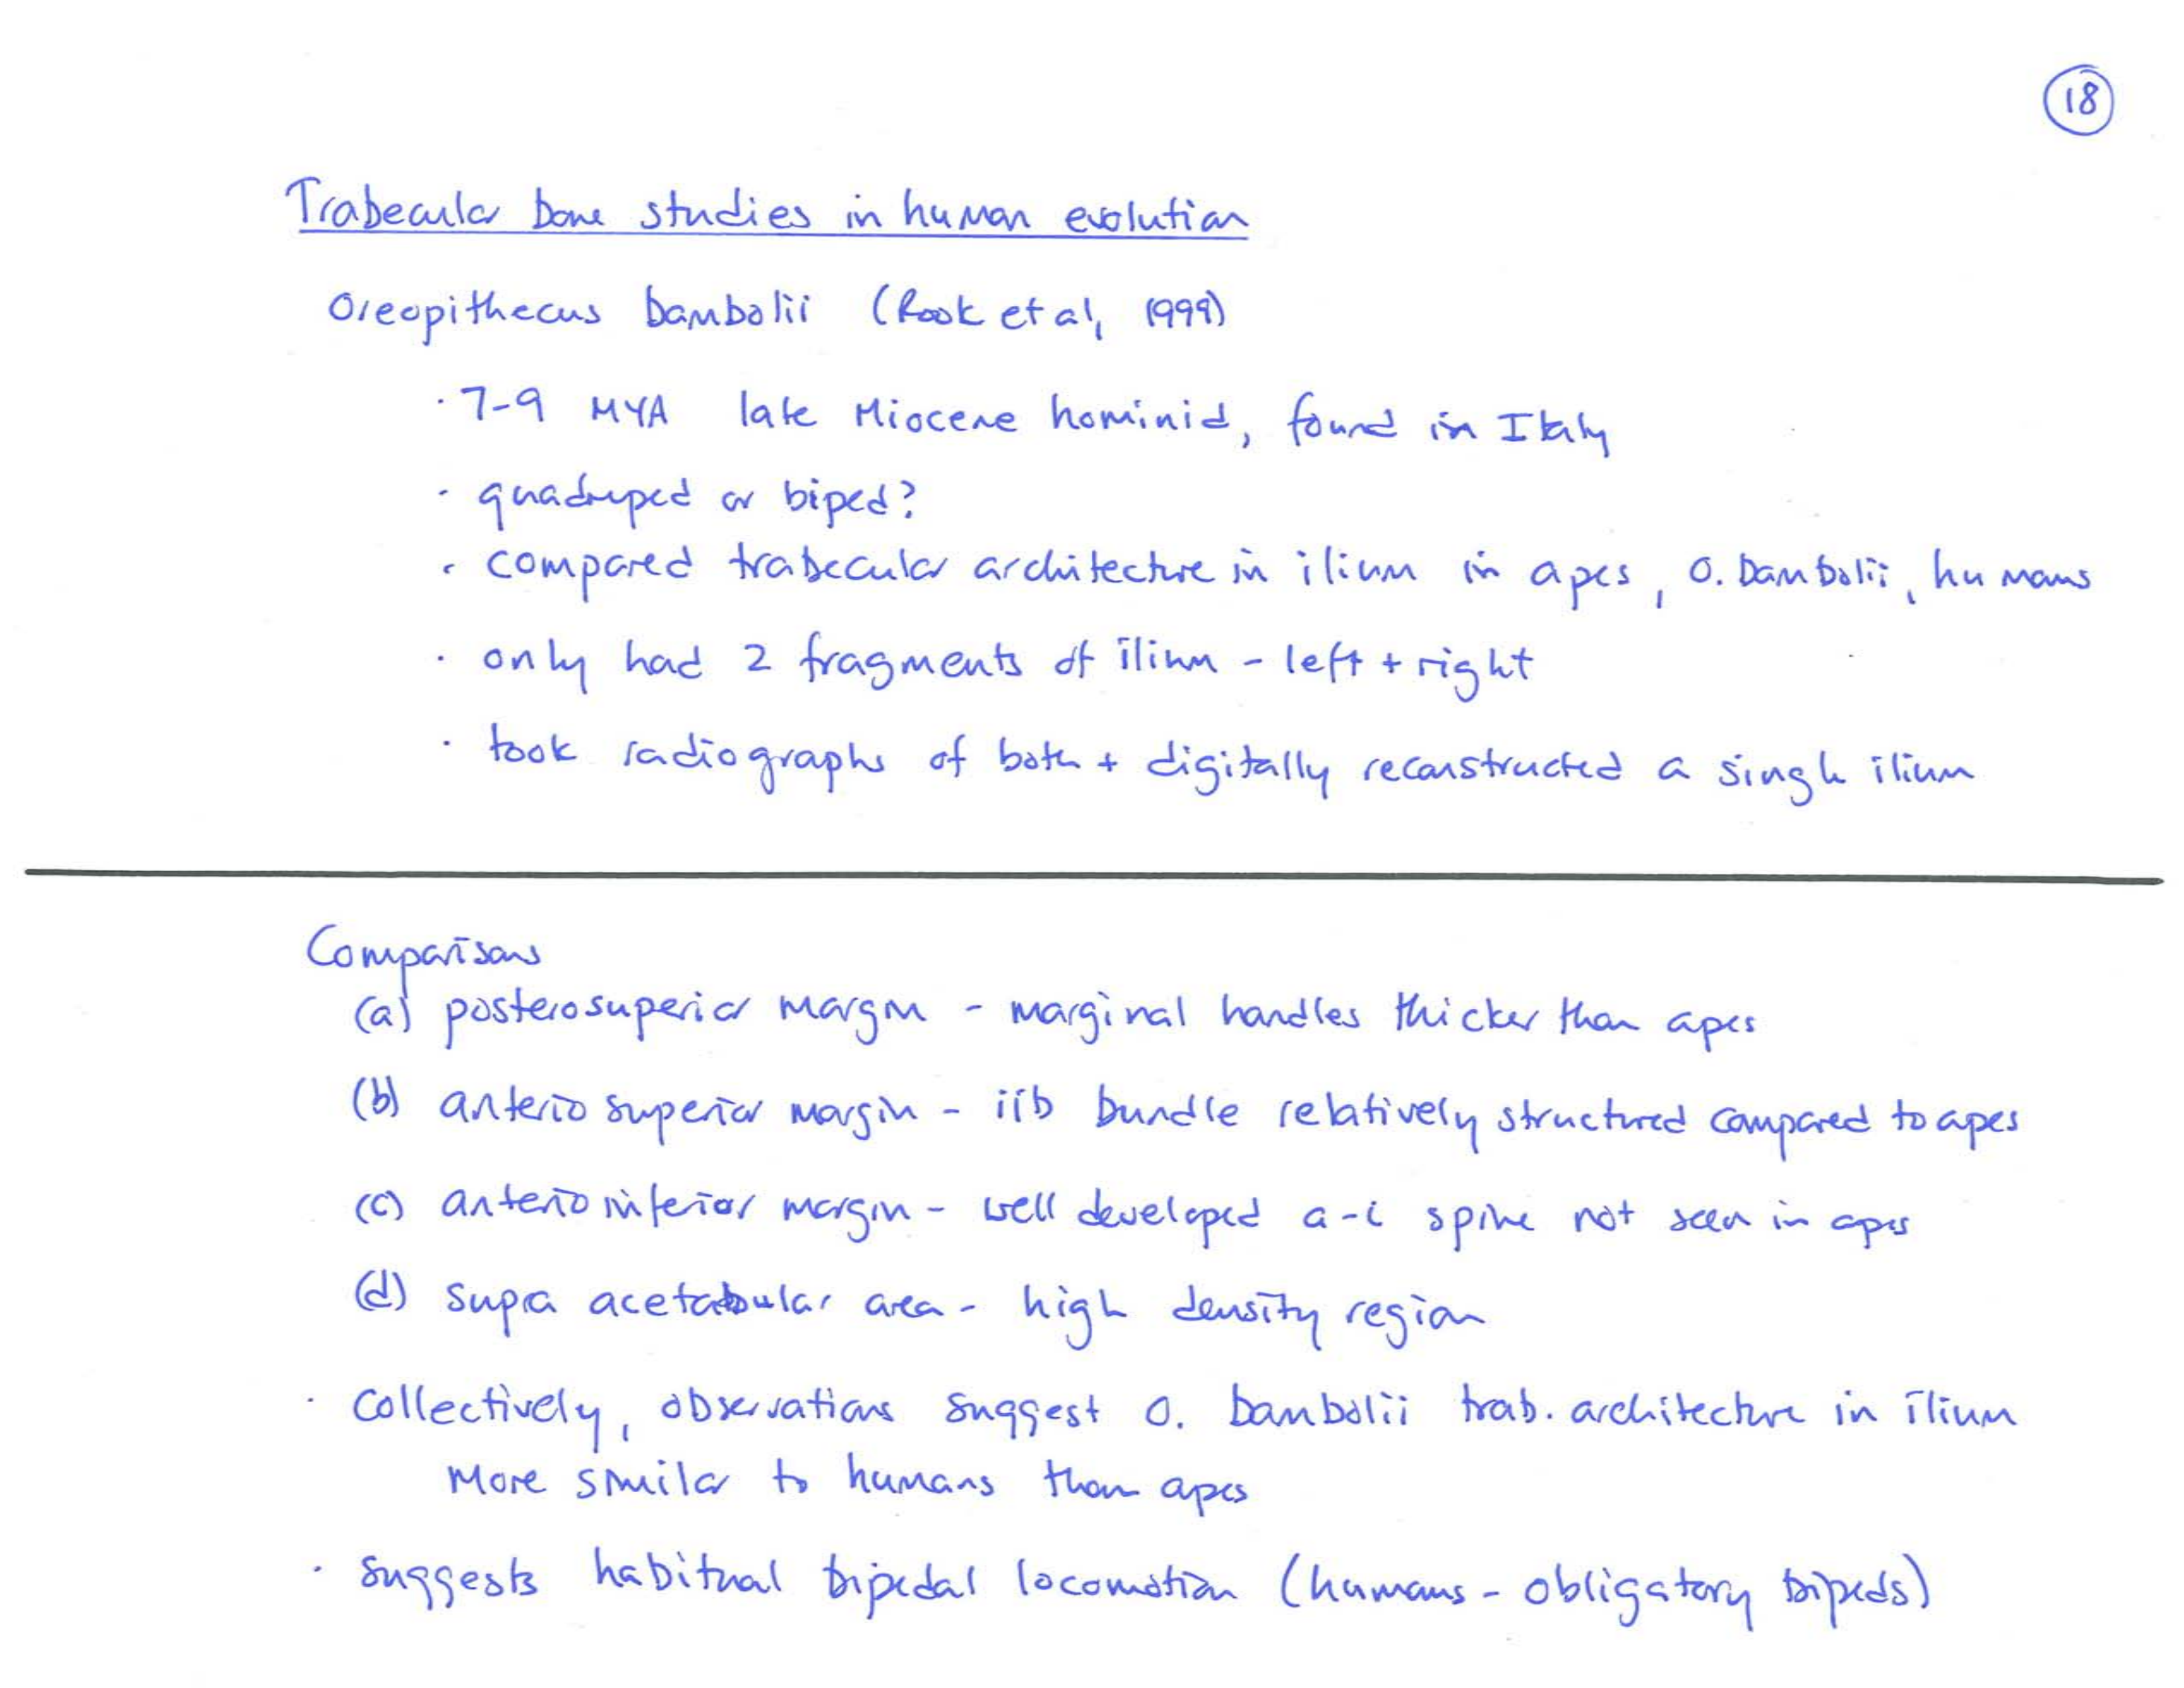 18
Trabecular bone studies in human evolution
Oreopithecus bambolii (Rook et al, 1999)
· 7-9 MYA late Miocene hominid, found in Italy
· quadruped or biped?
· compared trabecular architecture in ilium in apes, O. bambolii, humans
· only had 2 fragments of ilium - left + right
· took radiographs of both + digitally reconstructed a single ilium
Comparisons
(a) posterosuperior margin - marginal handles thicker than apes
(b) anteriosuperior margin - iib bundle relatively structured compared to apes
(c) anterioinferior margin - well developed a-i spine not seen in apes
(d) supra acetabular area - high density region
· Collectively, observations suggest O. bambolii trab. architecture in ilium
more similar to humans than apes
· suggests habitual bipedal locomotion (humans - obligatory bipeds)